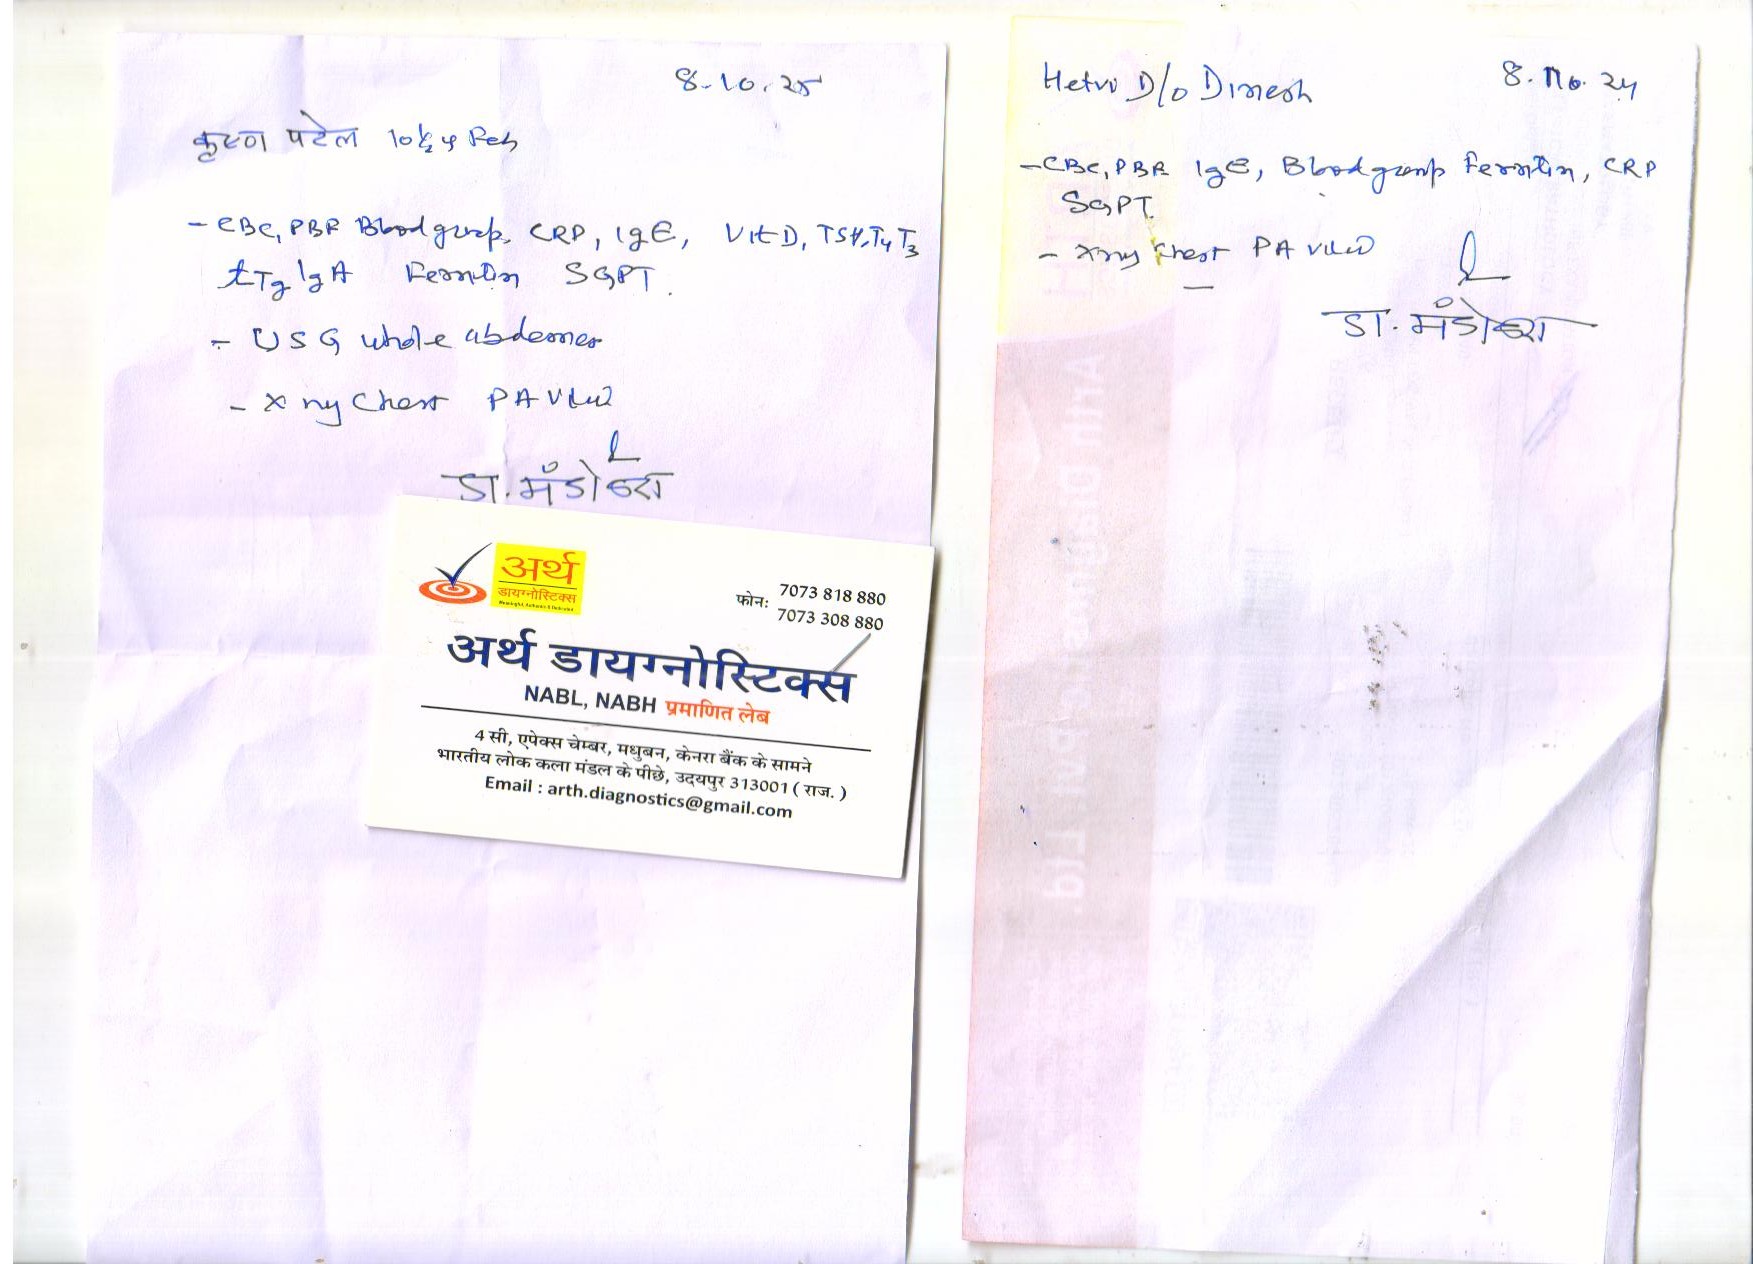 8.10.25
कृष्णा पटेल 10½ y
- CBC, PBF Blood group, CRP, IgE, Vit D, TSH, T4 T3
tTg IgA Ferritin SGPT.
- USG whole abdomen
- X ray Chest PA View
डा. मंडोव्रा
अर्थ
डायग्नोस्टिक्स
फोन: 7073 818 880
7073 308 880
अर्थ डायग्नोस्टिक्स
NABL, NABH प्रमाणित लेब
4 सी, एपेक्स चेम्बर, मधुबन, केनरा बैंक के सामने
भारतीय लोक कला मंडल के पीछे, उदयपुर 313001 ( राज. )
Email : arth.diagnostics@gmail.com
Hetvi D/o Dinesh
8.10.25
- CBC, PBF IgE, Blood group Ferritin, CRP
SGPT.
- X ray Chest PA View
डा. मंडोव्रा